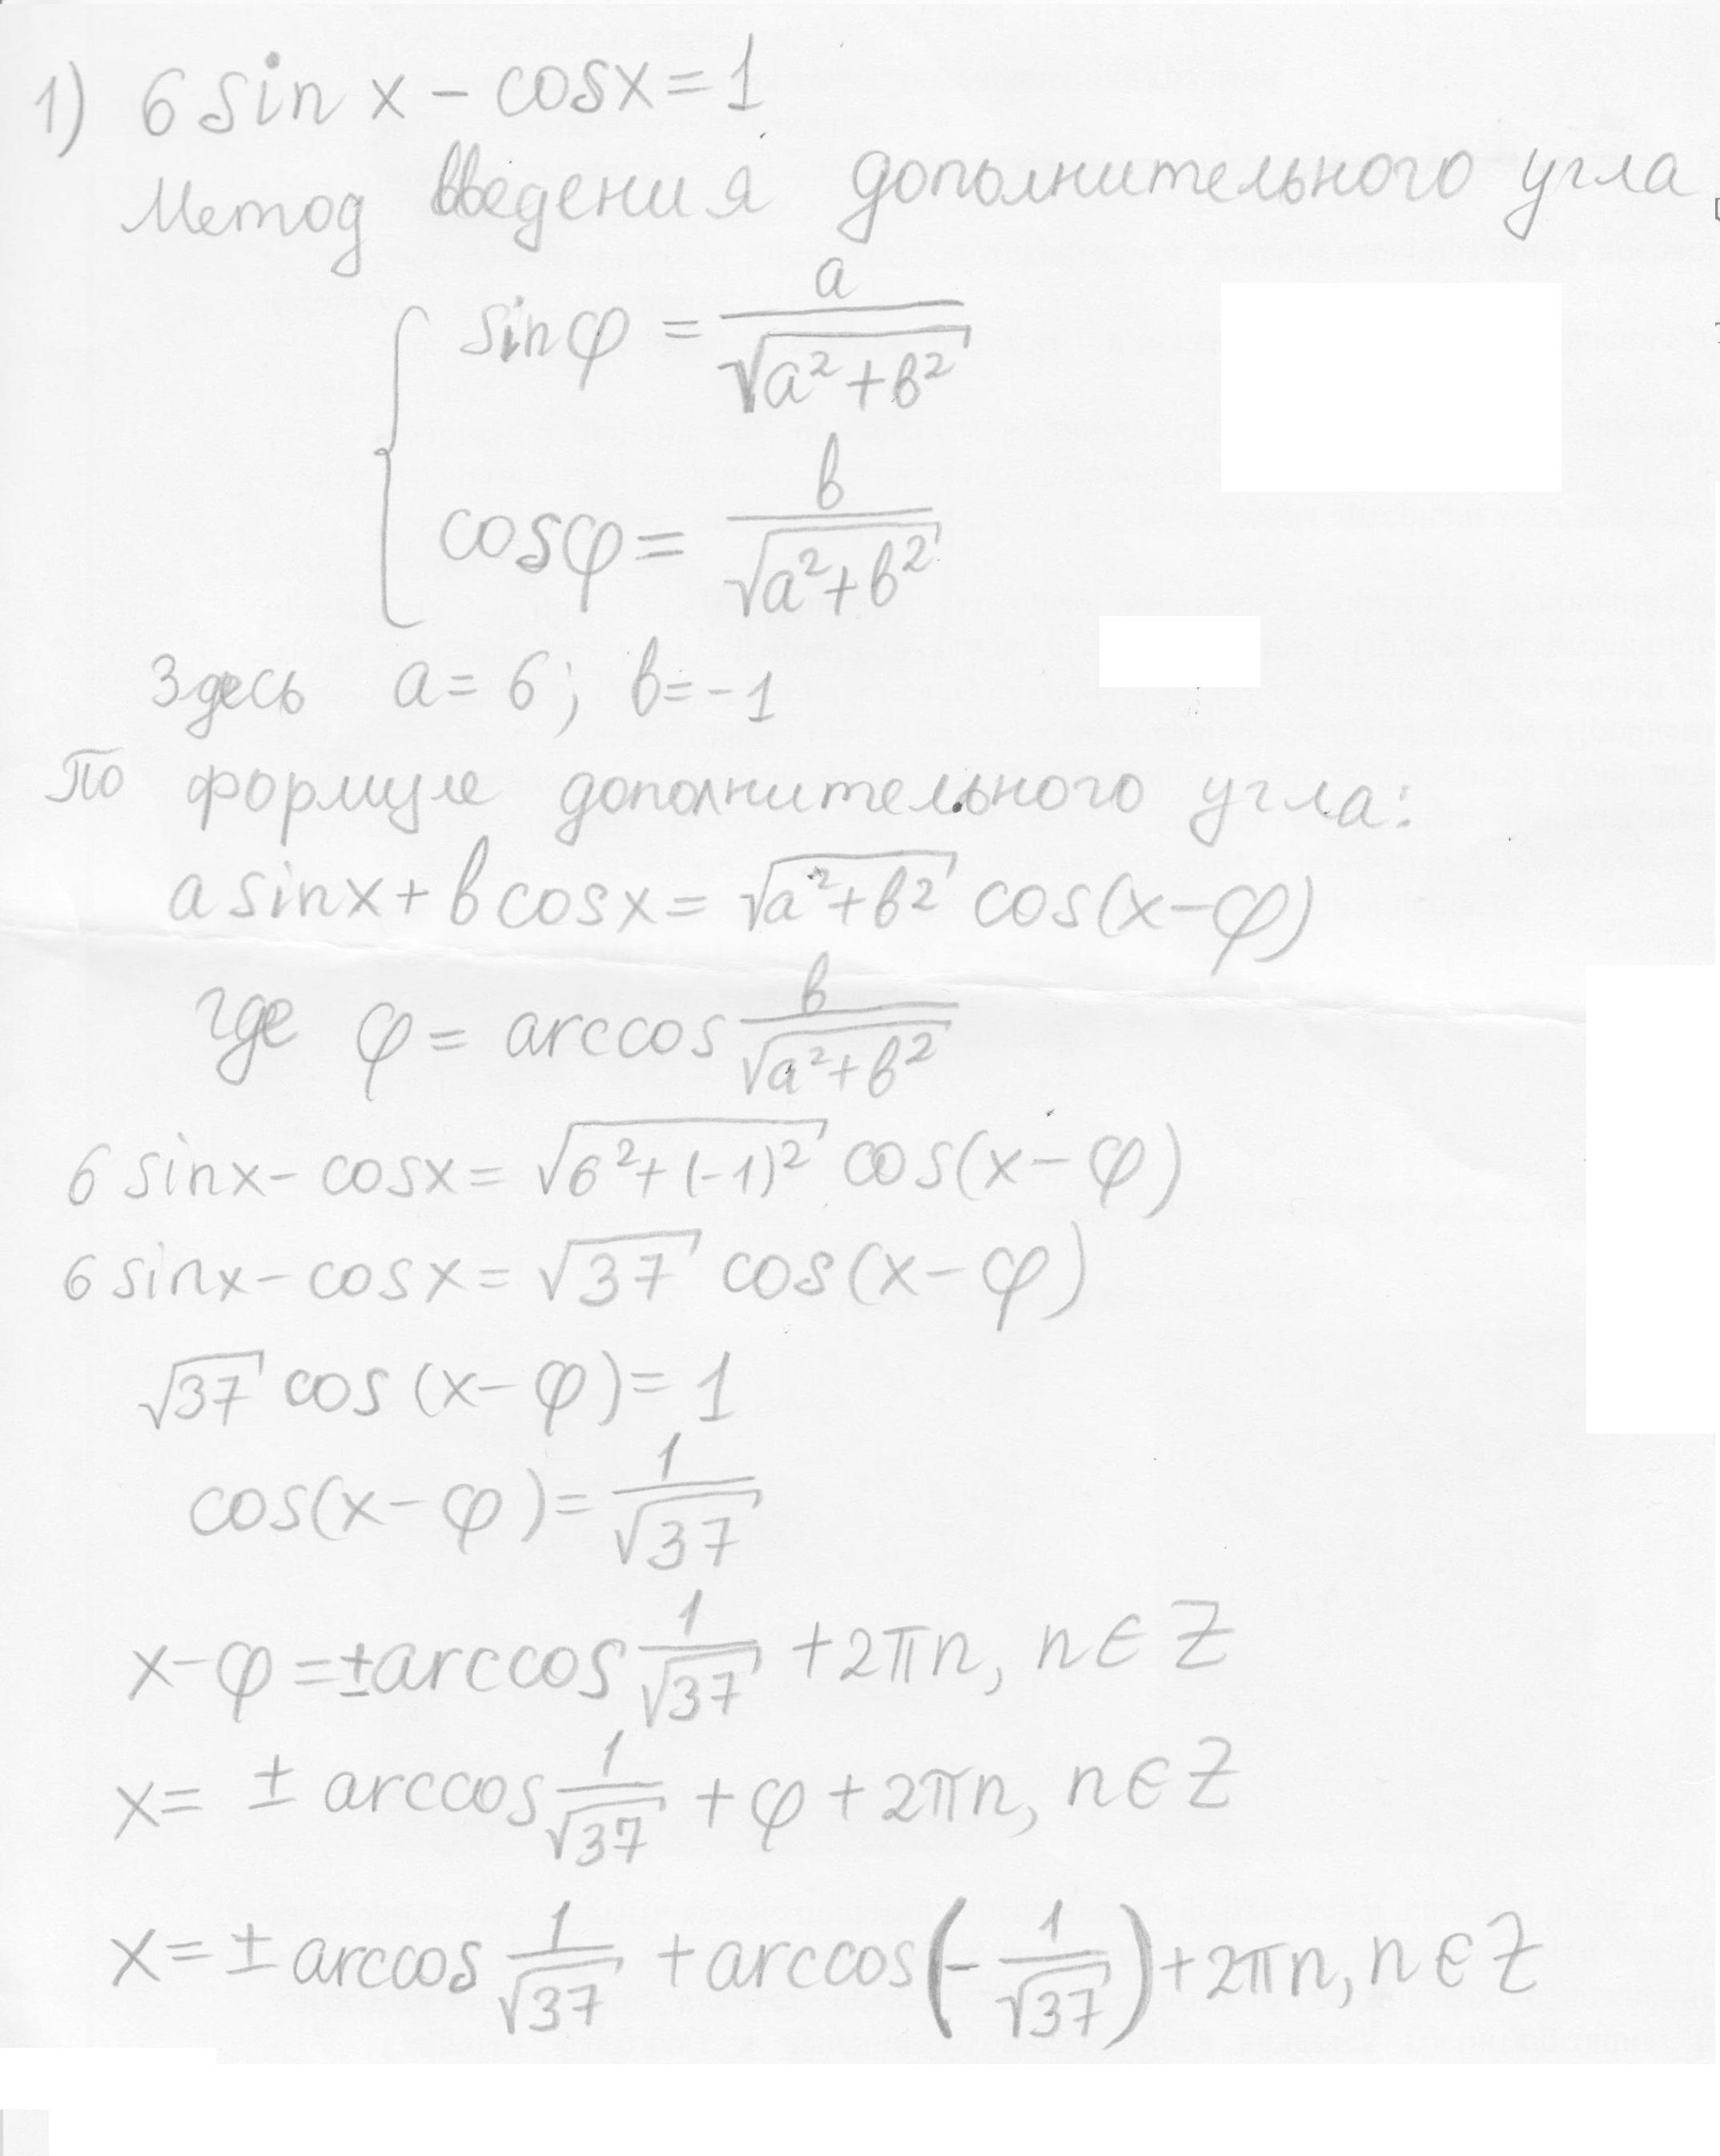 1) 6 sin x - cosx = 1
Метод введения дополнительного угла
sinφ = a / √(a²+b²)
cosφ = b / √(a²+b²)
Здесь a = 6; b = -1
По формуле дополнительного угла:
a sinx + b cosx = √(a²+b²) cos(x-φ)
где φ = arccos b / √(a²+b²)
6 sinx - cosx = √(6²+(-1)²) cos(x-φ)
6 sinx - cosx = √37 cos(x-φ)
√37 cos(x-φ) = 1
cos(x-φ) = 1/√37
x-φ = ± arccos 1/√37 + 2πn, n ∈ Z
x = ± arccos 1/√37 + φ + 2πn, n ∈ Z
x = ± arccos 1/√37 + arccos(-1/√37) + 2πn, n ∈ Z